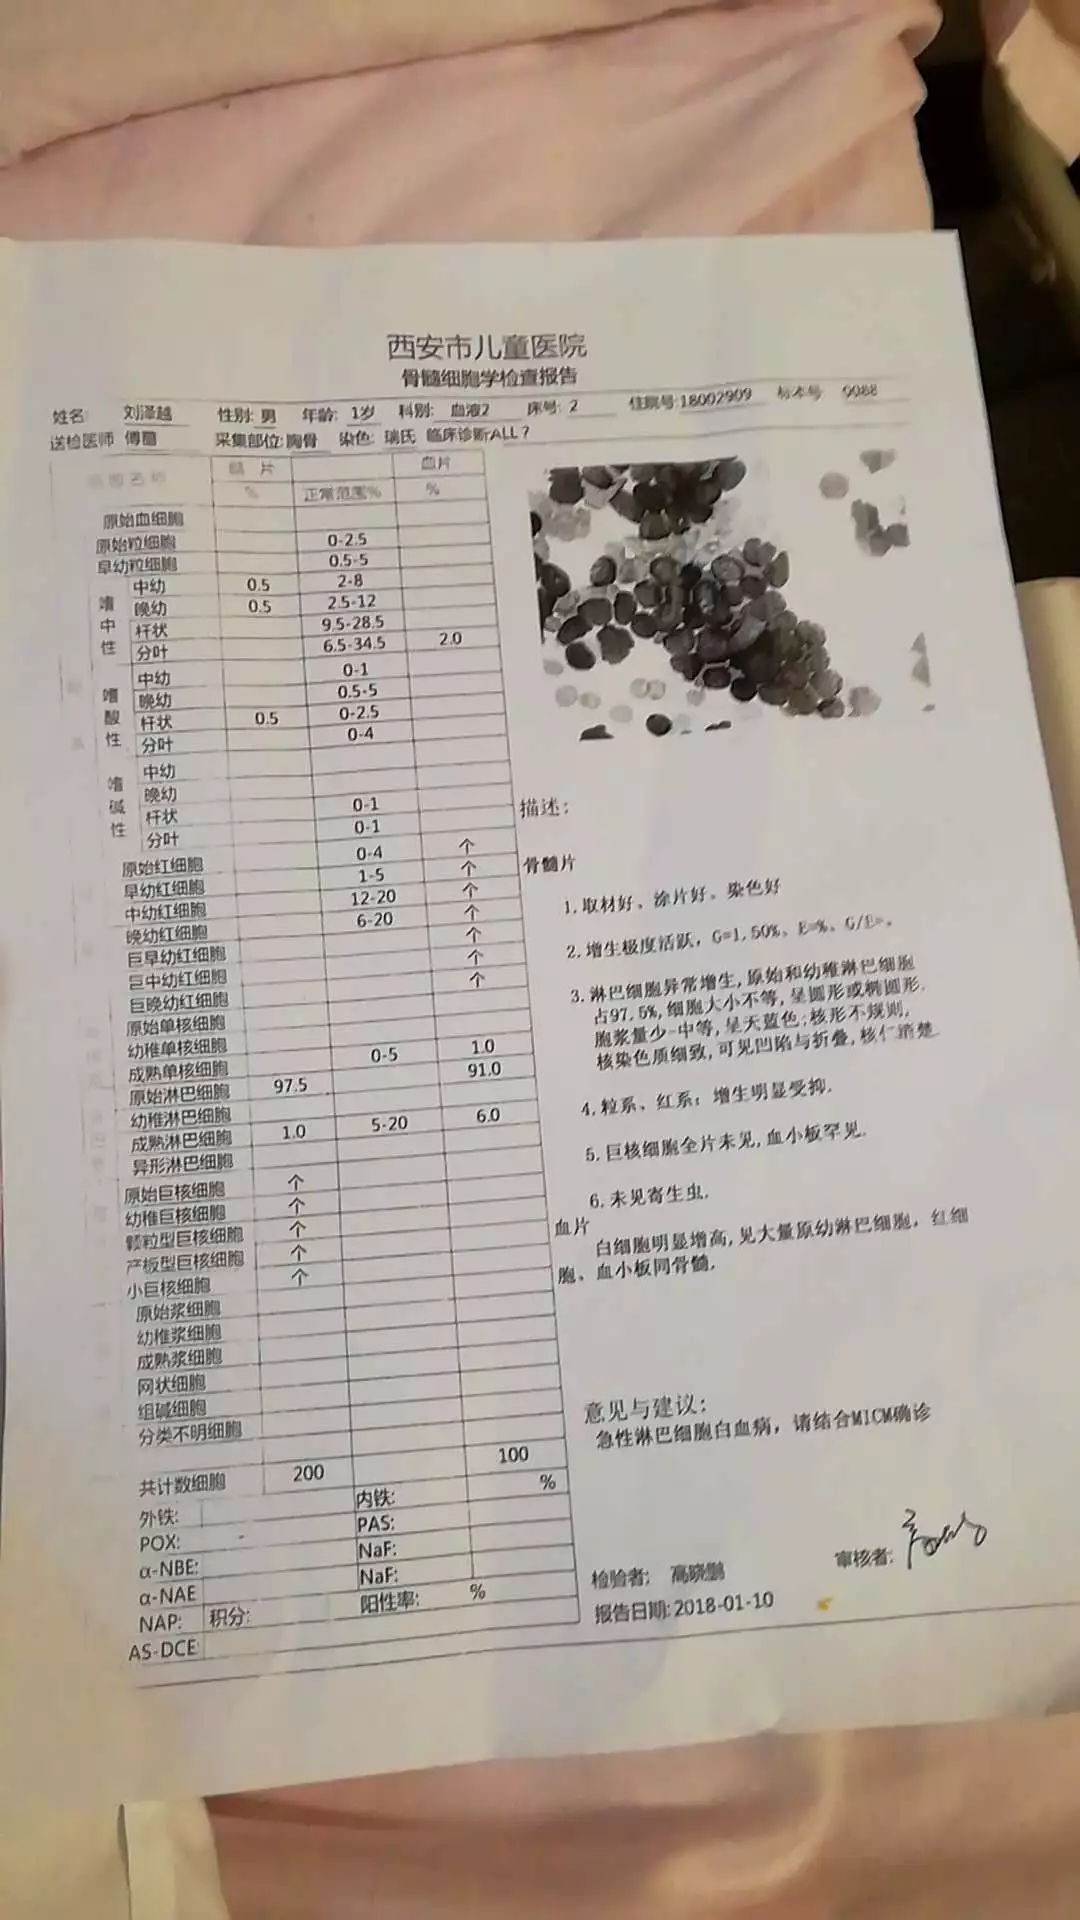 西安市儿童医院
骨髓细胞学检查报告
姓名: 刘泽越 性别: 男 年龄: 1岁 科别: 血液2 床号: 2 住院号:18002909 标本号 0088
送检医师 傅 采集部位:胸骨 染色: 瑞氏 临床诊断ALL?
细胞名称 髓片 血片
% 正常范围% %
原始血细胞
原始粒细胞 0-2.5
早幼粒细胞 0.5-5
嗜中性 中幼 0.5 2-8
晚幼 0.5 2.5-12
杆状 9.5-28.5
分叶 6.5-34.5 2.0
嗜酸性 中幼 0-1
晚幼 0.5-5
杆状 0.5 0-2.5
分叶 0-4
嗜碱性 中幼
晚幼
杆状 0-1
分叶 0-1
原始红细胞 0-4 个
早幼红细胞 1-5 个
中幼红细胞 12-20 个
晚幼红细胞 6-20 个
巨早幼红细胞 个
巨中幼红细胞 个
巨晚幼红细胞 个
原始单核细胞
幼稚单核细胞
成熟单核细胞 0-5 1.0
原始淋巴细胞 97.5 91.0
幼稚淋巴细胞
成熟淋巴细胞 1.0 5-20 6.0
异形淋巴细胞
原始巨核细胞 个
幼稚巨核细胞 个
颗粒型巨核细胞 个
产板型巨核细胞 个
小巨核细胞 个
原始浆细胞
幼稚浆细胞
成熟浆细胞
网状细胞
组碱细胞
分类不明细胞
共计数细胞 200 100
外铁: 内铁: %
POX: PAS:
α-NBE: NaF:
α-NAE NaF:
NAP: 积分: 阳性率: %
AS-DCE
描述:
骨髓片
1.取材好、涂片好、染色好
2.增生极度活跃，G=1.50%、E=%、G/E=。
3.淋巴细胞异常增生,原始和幼稚淋巴细胞
占97.5%,细胞大小不等,呈圆形或椭圆形.
胞浆量少-中等,呈天蓝色;核形不规则,
核染色质细致,可见凹陷与折叠,核仁清楚
4.粒系、红系: 增生明显受抑.
5.巨核细胞全片未见,血小板罕见.
6.未见寄生虫.
血片
白细胞明显增高,见大量原幼淋巴细胞，红细
胞、血小板同骨髓.
意见与建议:
急性淋巴细胞白血病，请结合MICM确诊
检验者: 高晓鹏 审核者:
报告日期:2018-01-10